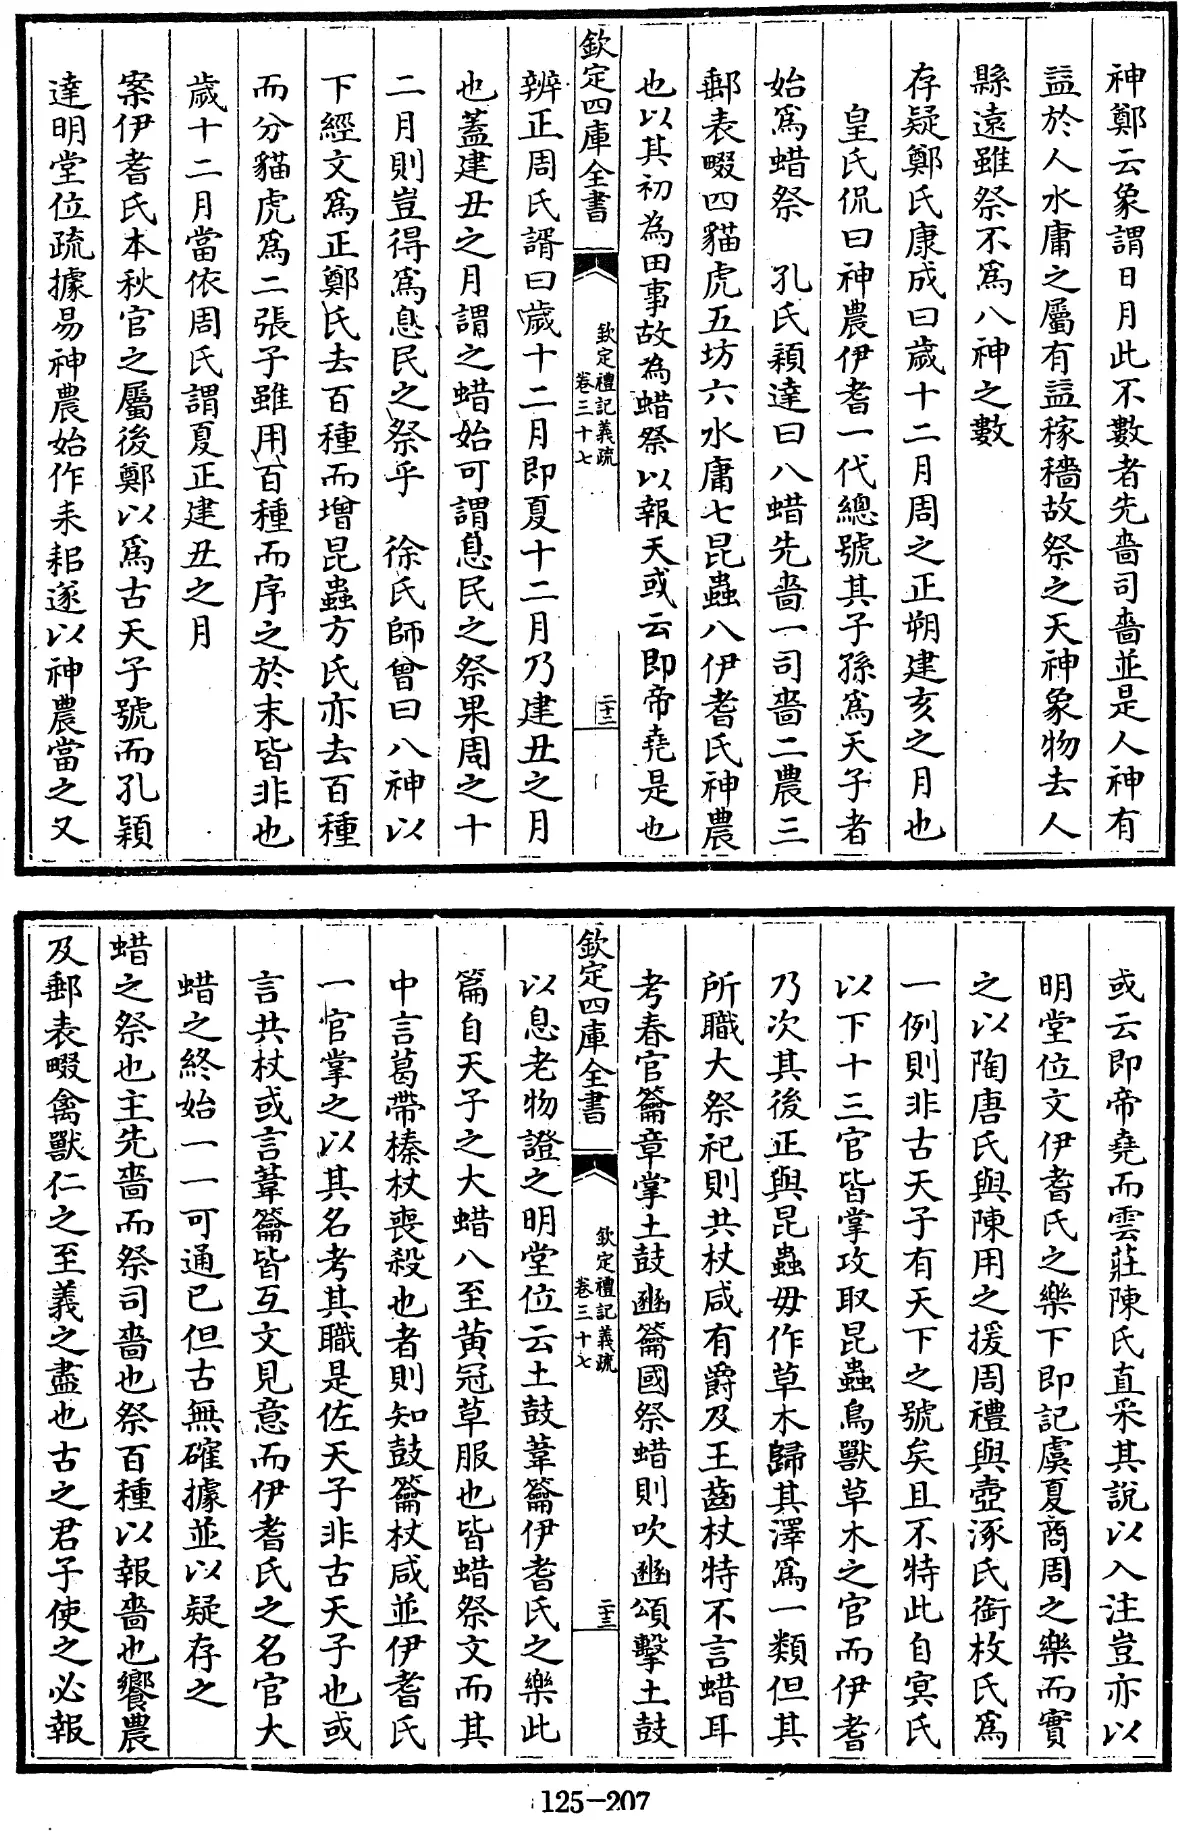 神鄭云象謂日月此不數者先嗇司嗇並是人神有
益於人水庸之屬有益稼穡故祭之天神象物去人
縣遠雖祭不爲八神之數
存疑鄭氏康成曰歲十二月周之正朔建亥之月也
皇氏侃曰神農伊耆一代總號其子孫爲天子者
始爲蜡祭　孔氏穎達曰八蜡先嗇一司嗇二農三
郵表畷四貓虎五坊六水庸七昆蟲八伊耆氏神農
也以其初為田事故為蜡祭以報天或云即帝堯是也
欽定四庫全書
欽定禮記義疏
卷三十七
二十二
辨正周氏諝曰歲十二月即夏十二月乃建丑之月
也蓋建丑之月謂之蜡始可謂息民之祭果周之十
二月則豈得爲息民之祭乎　徐氏師曾曰八神以
下經文爲正鄭氏去百種而增昆蟲方氏亦去百種
而分貓虎爲二張子雖用百種而序之於末皆非也
歲十二月當依周氏謂夏正建丑之月
案伊耆氏本秋官之屬後鄭以爲古天子號而孔穎
達明堂位疏據易神農始作耒耜遂以神農當之又
或云即帝堯而雲莊陳氏直采其說以入注豈亦以
明堂位文伊耆氏之樂下即記虞夏商周之樂而實
之以陶唐氏與陳用之援周禮與壺涿氏銜枚氏爲
一例則非古天子有天下之號矣且不特此自冥氏
以下十三官皆掌攻取昆蟲鳥獸草木之官而伊耆
乃次其後正與昆蟲毋作草木歸其澤爲一類但其
所職大祭祀則共杖咸有爵及王齒杖特不言蜡耳
考春官籥章掌土鼓豳籥國祭蜡則吹豳頌擊土鼓
欽定四庫全書
欽定禮記義疏
卷三十七
二十三
以息老物證之明堂位云土鼓葦籥伊耆氏之樂此
篇自天子之大蜡八至黄冠草服也皆蜡祭文而其
中言葛帶榛杖喪殺也者則知鼓籥杖咸並伊耆氏
一官掌之以其名考其職是佐天子非古天子也或
言共杖或言葦籥皆互文見意而伊耆氏之名官大
蜡之終始一一可通已但古無確據並以疑存之
蜡之祭也主先嗇而祭司嗇也祭百種以報嗇也饗農
及郵表畷禽獸仁之至義之盡也古之君子使之必報
125-207